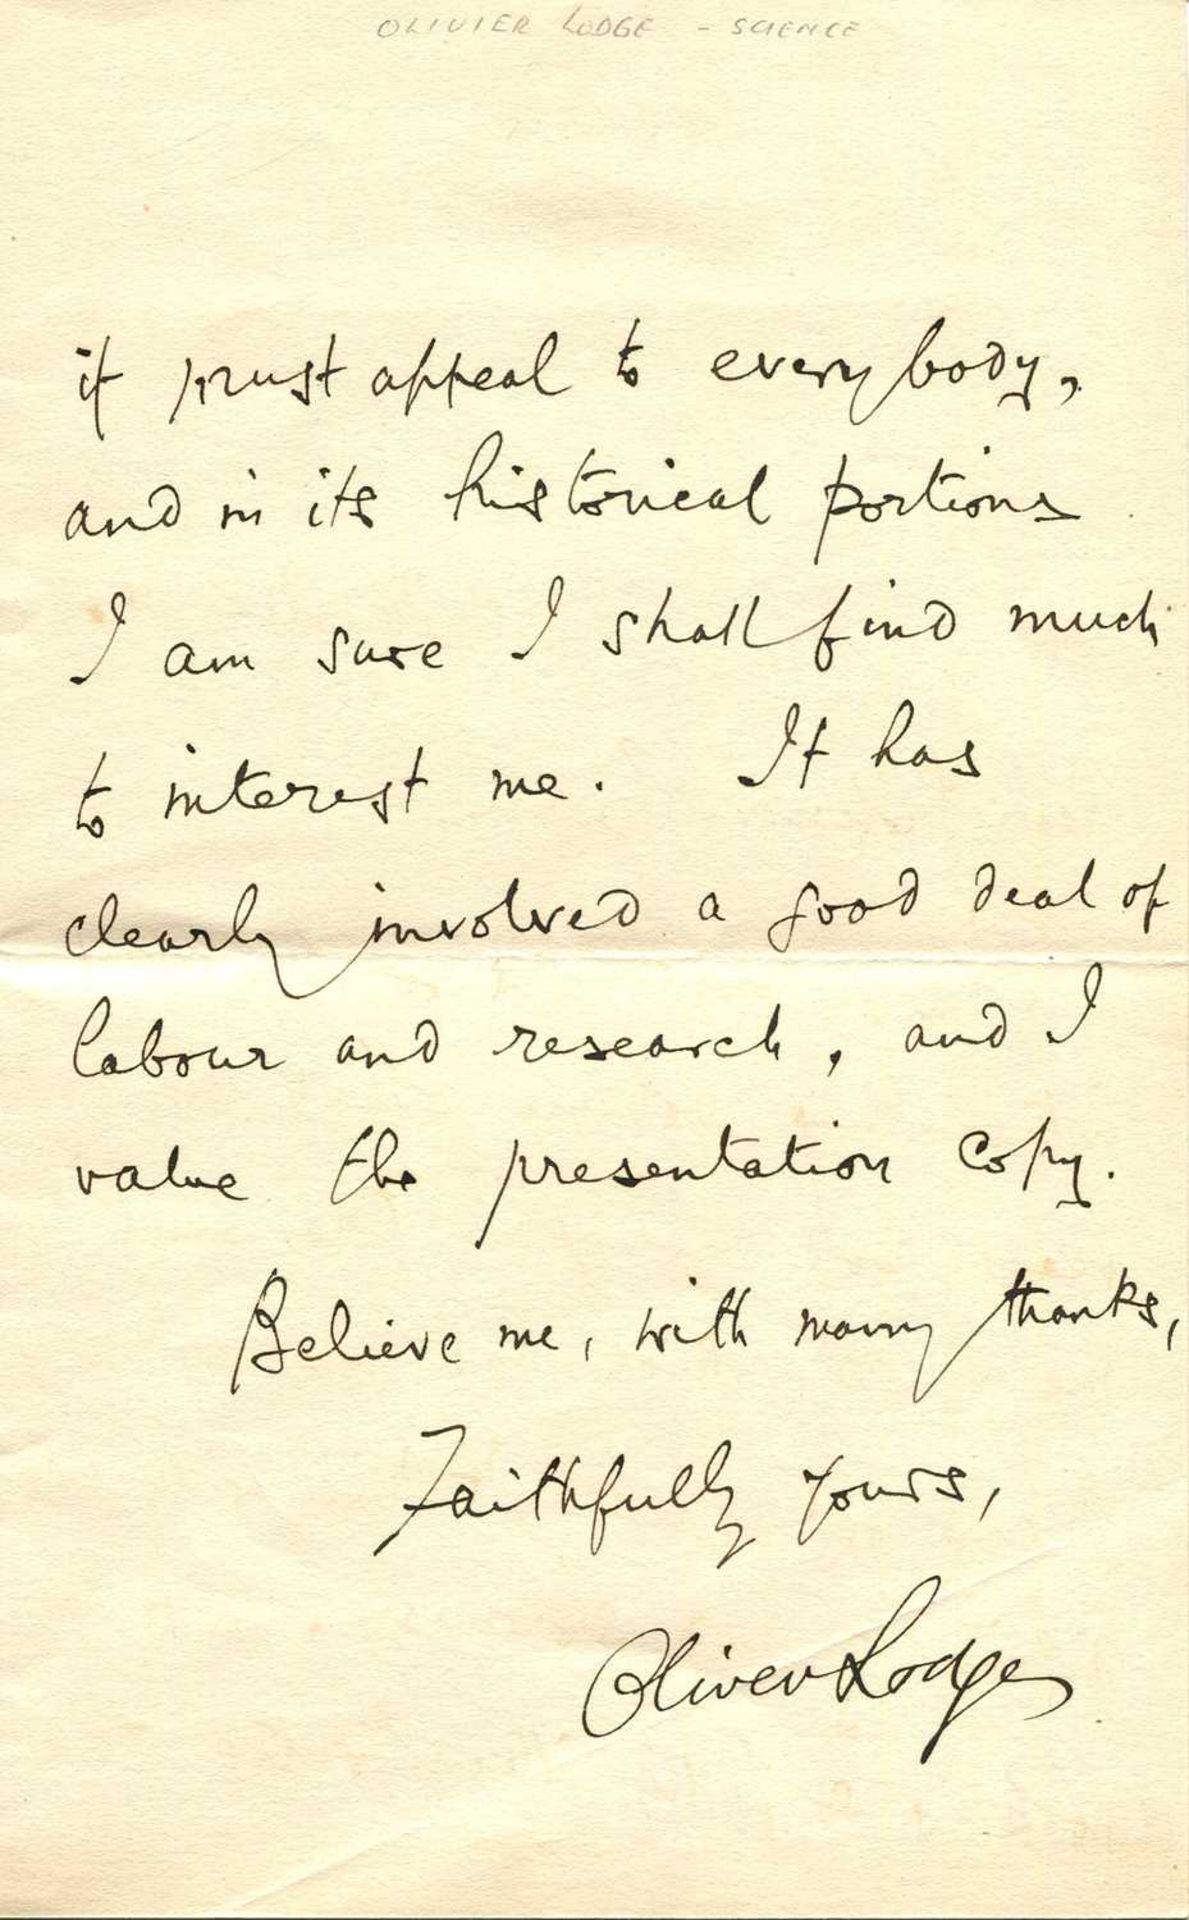 OLIVIER LODGE - SCIENCE
it must appeal to everybody,
and in its historical portions
I am sure I shall find much
to interest me. It has
clearly involved a good deal of
labour and research, and I
value the presentation copy.
Believe me, with many thanks,
Faithfully yours,
Oliver Lodge